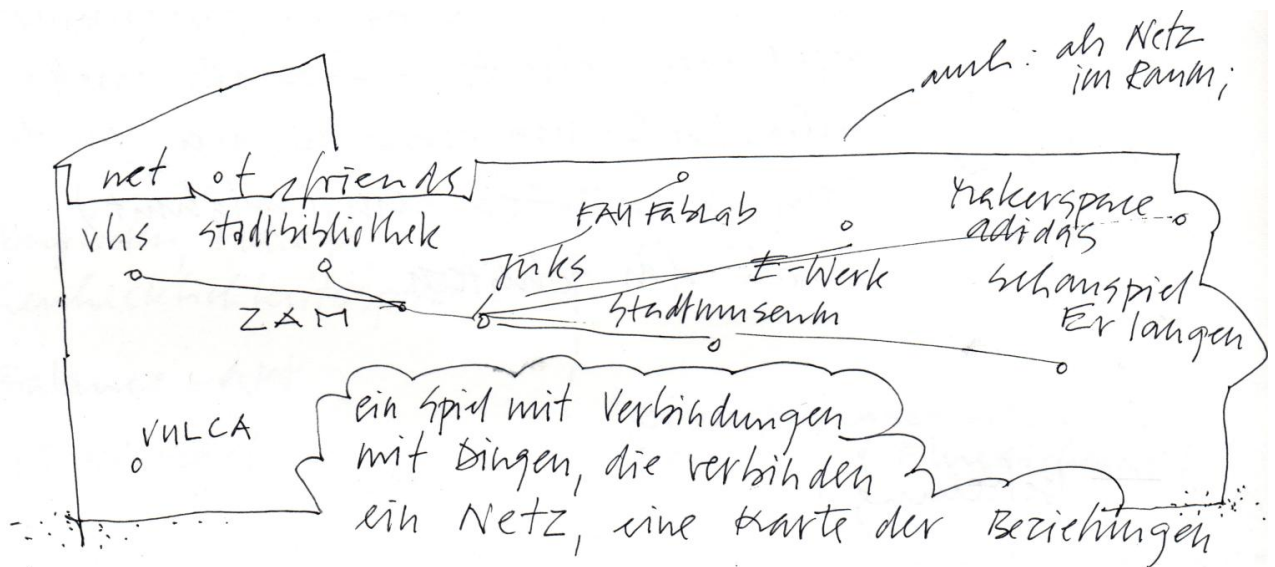 auch: als Netz
im Raum;
net of friends
vhs stadtbibliothek
FAU FabLab
makerspace
adidas
Juks
E-Werk
ZAM
Stadtmuseum
schauspiel
Erlangen
VULCA
ein Spiel mit Verbindungen
mit Dingen, die verbinden
ein Netz, eine Karte der Beziehungen